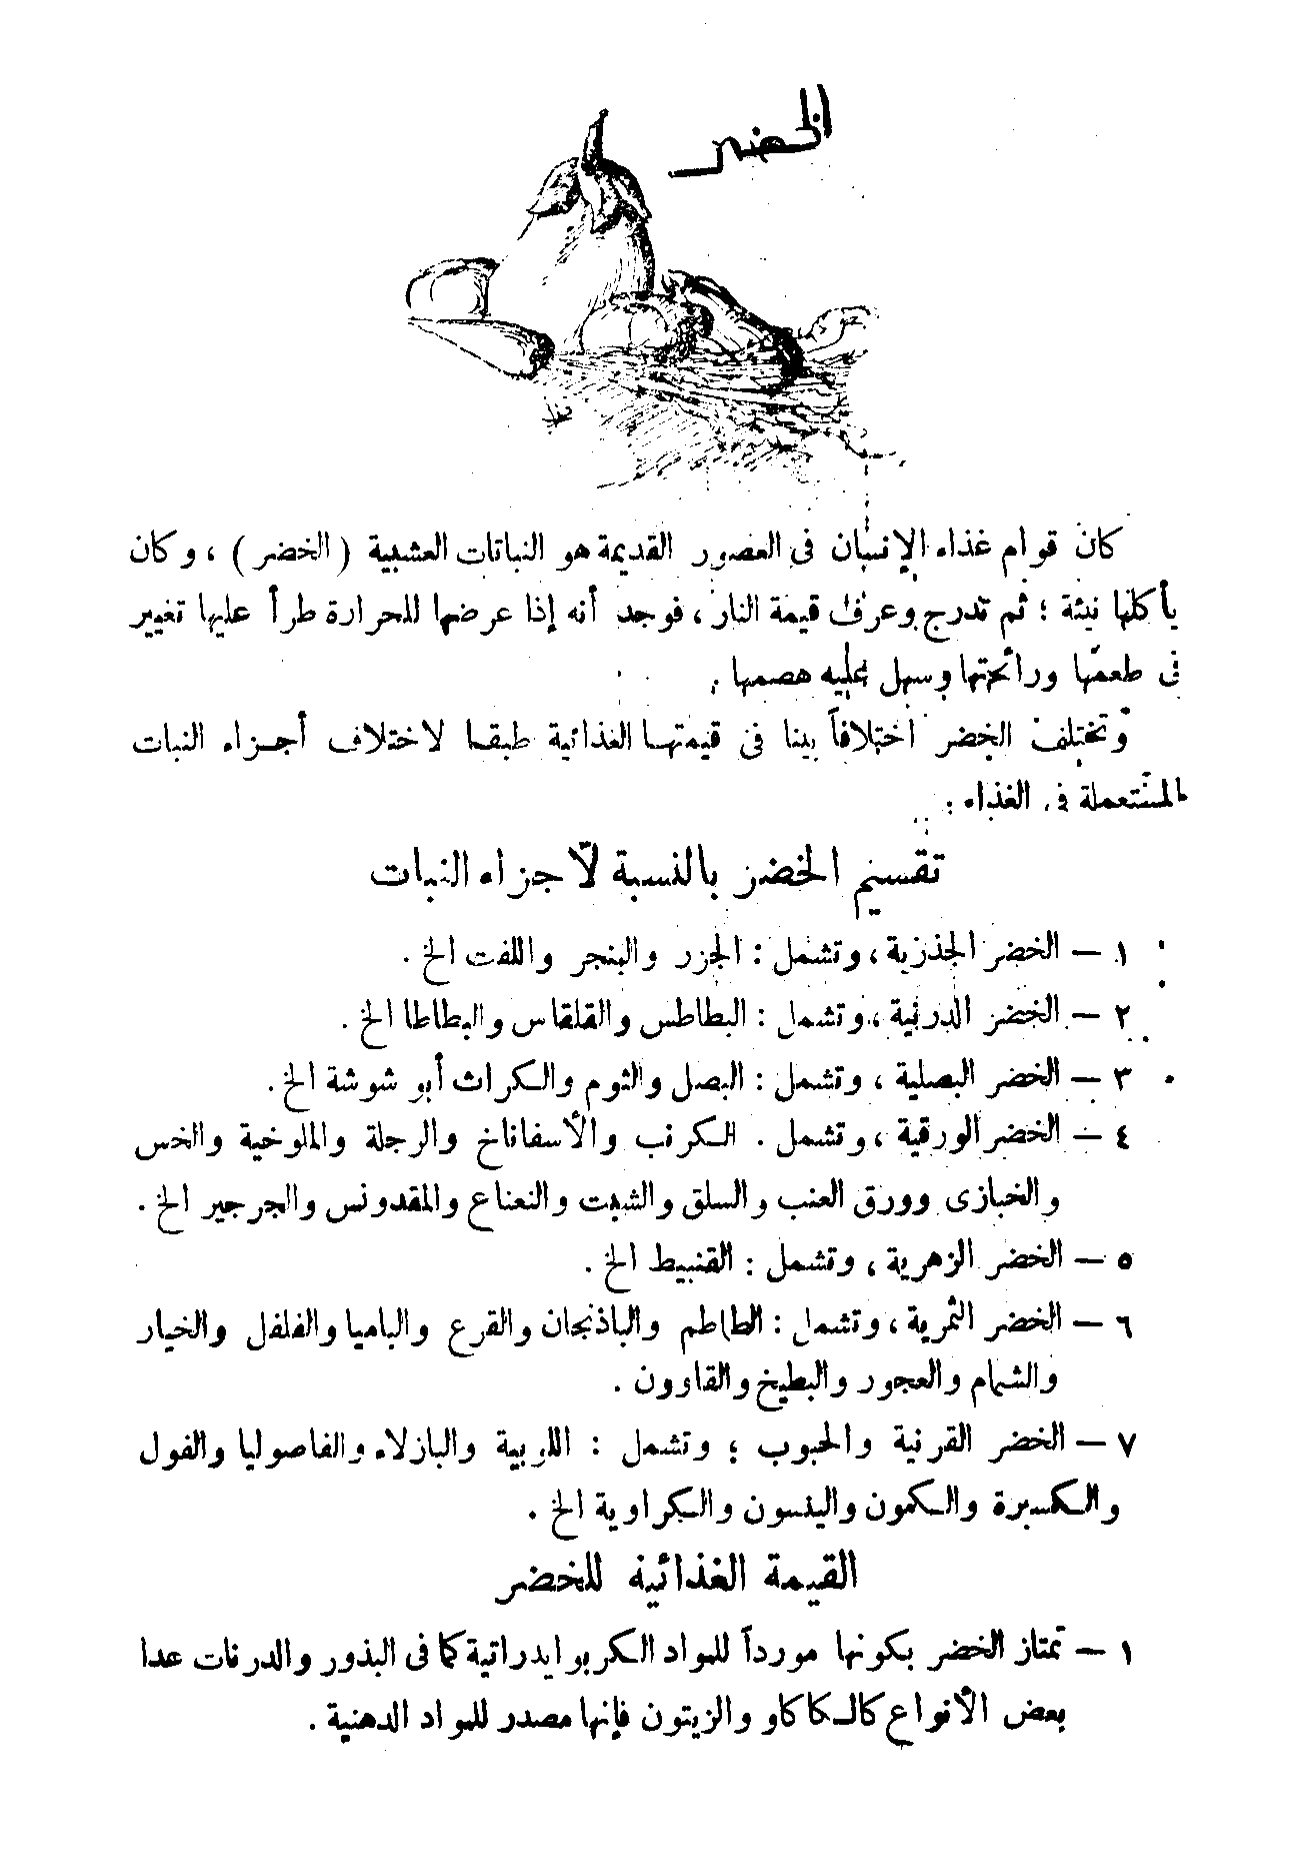 الخضر
كان قوام غذاء الإنسان فى العصور القديمة هو النباتات العشبية (الخضر) ، وكان
يأكلها نيئة ؛ ثم تدرج وعرف قيمة النار ، فوجد أنه إذا عرضها للحرارة طرأ عليها تغيير
فى طعمها ورائحتها وسهل عليه هضمها .
وتختلف الخضر اختلافاً بينا فى قيمتها الغذائية طبقا لاختلاف أجزاء النبات
المستعملة فى الغذاء :
تقسيم الخضر بالنسبة لأجزاء النبات
١ — الخضر الجذرية ، وتشمل : الجزر والبنجر واللفت الخ .
٢ — الخضر الدرنية ، وتشمل : البطاطس والقلقاس والبطاطا الخ .
٣ — الخضر البصلية ، وتشمل : البصل والثوم والكراث أبو شوشة الخ .
٤ — الخضر الورقية ، وتشمل . الكرنب والأسفاناخ والرجلة والملوخية والخس
والخبازى وورق العنب والسلق والشبت والنعناع والمقدونس والجرجير الخ .
٥ — الخضر الزهرية ، وتشمل : القنبيط الخ .
٦ — الخضر الثمرية ، وتشمل : الطماطم والباذنجان والقرع والباميا والفلفل والخيار
والشمام والعجور والبطيخ والقاوون .
٧ — الخضر القرنية والحبوب ؛ وتشمل : اللوبية والبازلاء والفاصوليا والفول
والكسبرة والكمون والينسون والكراوية الخ .
القيمة الغذائية للخضر
١ — تمتاز الخضر بكونها مورداً للمواد الكربوايدراتية كما فى البذور والدرنات عدا
بعض الأنواع كالكاكاو والزيتون فإنها مصدر للمواد الدهنية .